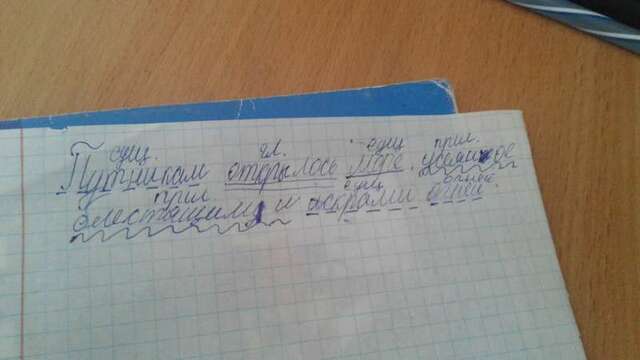 сущ. гл. сущ прил.
Путникам открылось море, усеянное
прил сущ
блестящими искрами огней.